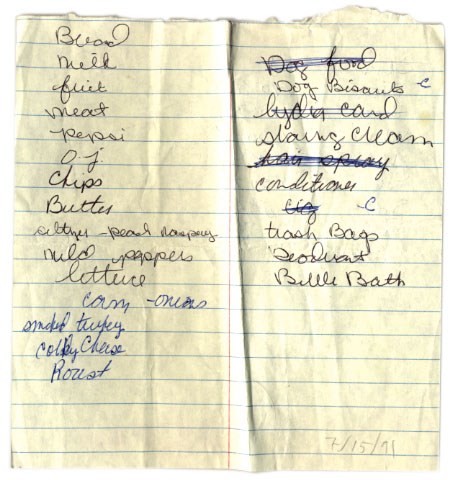 Bread
milk
fruit
meat
pepsi
O.j.
Chips
Butter
seltzer - peach raspberry
mild peppers
lettuce
corn - onions
smoked turkey
Colby Cheese
Roast
Dog food
Dog Biscuits - C
card
shaving cream
hair spray
conditioner
cig - C
trash Bags
Deodorant
Bath
7/15/91